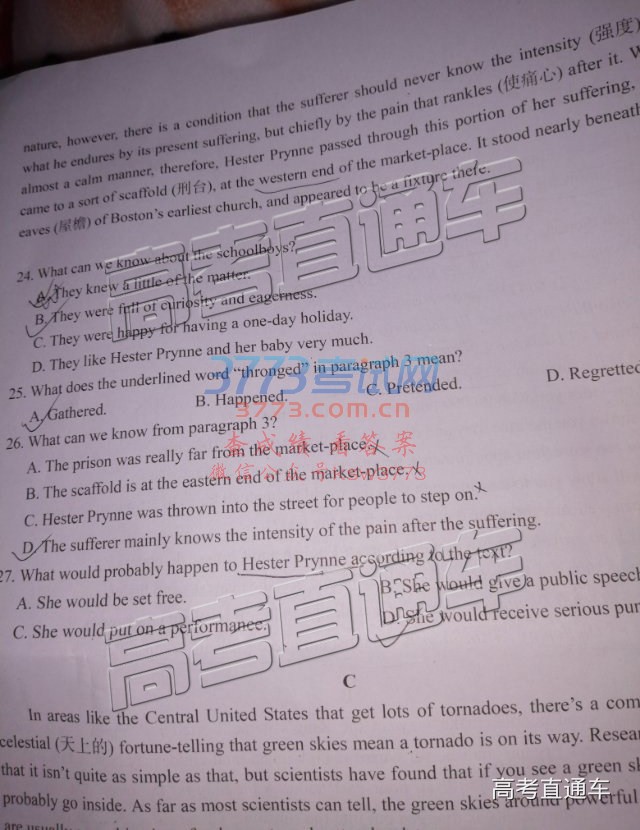 nature, however, there is a condition that the sufferer should never know the intensity (强度)
what he endures by its present suffering, but chiefly by the pain that rankles (使痛心) after it. W
almost a calm manner, therefore, Hester Prynne passed through this portion of her suffering,
came to a sort of scaffold (刑台), at the western end of the market-place. It stood nearly beneath
eaves (屋檐) of Boston's earliest church, and appeared to be a fixture there.
24. What can we know about the schoolboys?
A. They knew a little of the matter.
B. They were full of curiosity and eagerness.
C. They were happy for having a one-day holiday.
D. They like Hester Prynne and her baby very much.
25. What does the underlined word "thronged" in paragraph 3 mean?
A. Gathered. B. Happened. C. Pretended. D. Regretted
26. What can we know from paragraph 3?
A. The prison was really far from the market-place.
B. The scaffold is at the eastern end of the market-place.
C. Hester Prynne was thrown into the street for people to step on.
D. The sufferer mainly knows the intensity of the pain after the suffering.
27. What would probably happen to Hester Prynne according to the text?
A. She would be set free. B. She would give a public speech
C. She would put on a performance. D. She would receive serious pun
C
In areas like the Central United States that get lots of tornadoes, there's a com
celestial (天上的) fortune-telling that green skies mean a tornado is on its way. Resear
that it isn't quite as simple as that, but scientists have found that if you see a green sk
probably go inside. As far as most scientists can tell, the green skies around powerful
are usually
高考直通车
3773考试网
3773.com.cn
查成绩 看答案
微信公众号
高考直通车
高考直通车